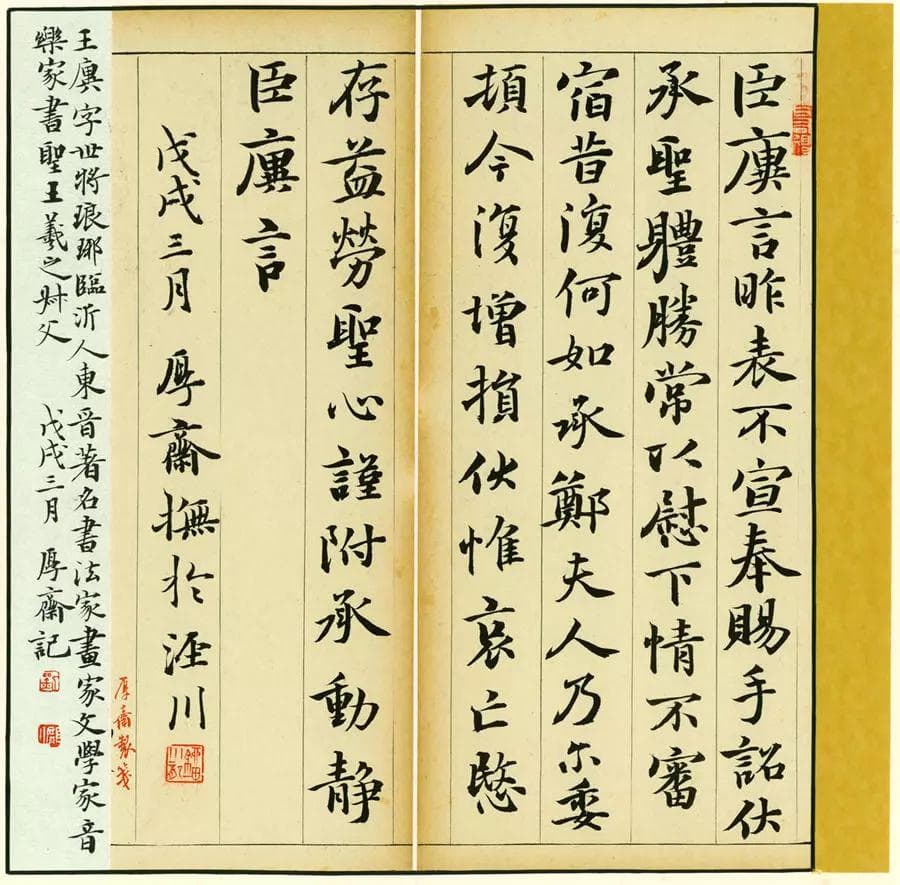 臣廙言昨表不宣奉賜手詔伏
承聖體勝常以慰下情不審
宿昔復何如承鄭夫人乃尒委
頓今復增損伏惟哀亡愍
存益勞聖心謹附承動静
臣廙言
戊戌三月 厚齋撫於涇川
厚齋製箋
王廙字世將琅琊臨沂人東晋著名書法家畫家文學家音
樂家書聖王羲之叔父 戊戌三月 厚齋記